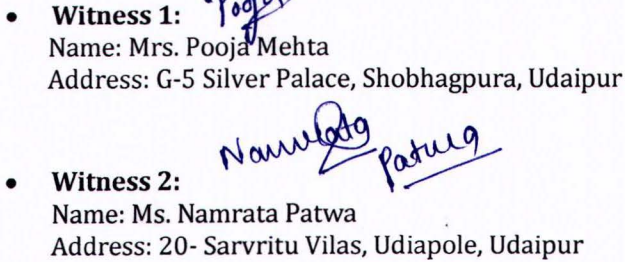 • Witness 1:
Name: Mrs. Pooja Mehta
Address: G-5 Silver Palace, Shobhagpura, Udaipur
Namrata Patwa
• Witness 2:
Name: Ms. Namrata Patwa
Address: 20- Sarvritu Vilas, Udiapole, Udaipur